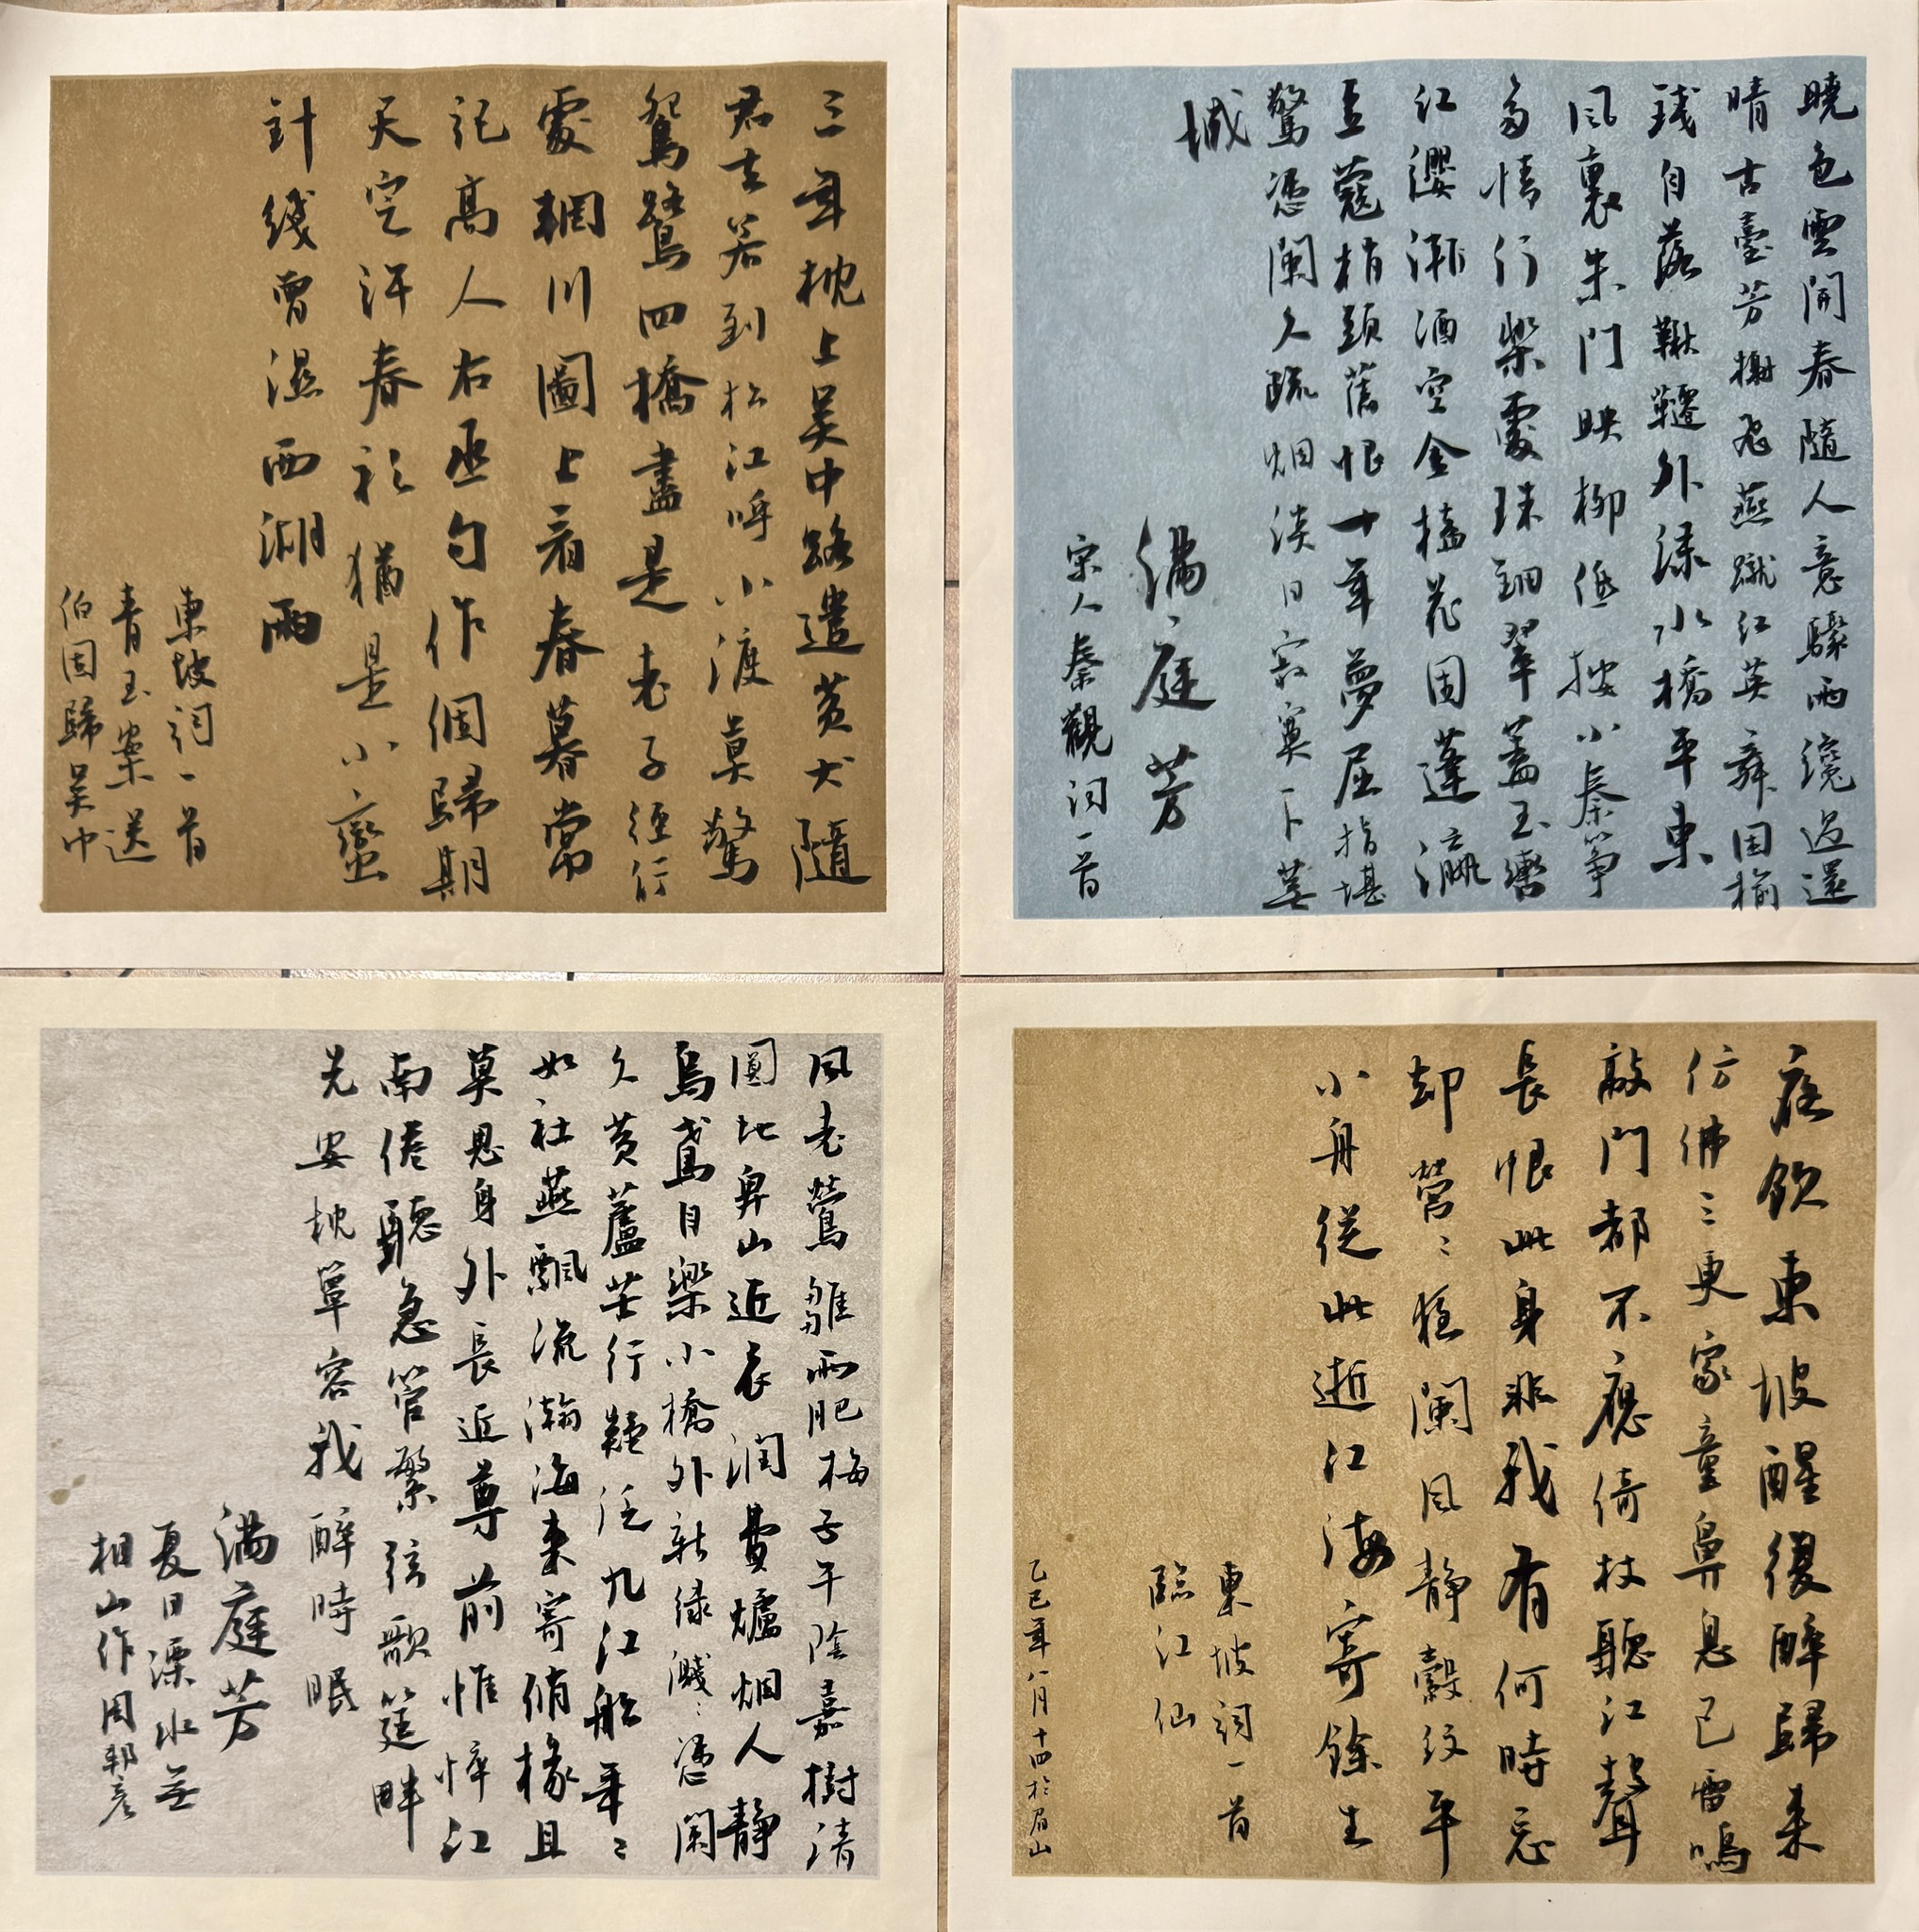 曉色雲開春隨人意驟雨纔過還
晴古臺芳榭飛燕蹴紅英舞困榆
錢自落鞦韆外淥水橋平東
風裏朱門映柳低按小秦箏
多情行樂處珠鈿翠蓋玉轡
紅纓漸酒空金榼花困蓬瀛
豆蔻梢頭舊恨十年夢屈指堪
驚憑闌久疏烟淡日寂寞下蕪
城
滿庭芳
宋人秦觀詞一首
三年枕上吳中路遣黃犬隨
君去若到松江呼小渡莫驚
鴛鷺四橋盡是老子經行
處輞川圖上看春暮常
記高人右丞句作個歸期
天定許春衫猶是小蠻
針綫曾濕西湖雨
東坡詞一首
青玉案送
伯固歸吳中
夜飲東坡醒復醉歸來
仿佛三更家童鼻息已雷鳴
敲門都不應倚杖聽江聲
長恨此身非我有何時忘
却營〻夜闌風靜縠紋平
小舟從此逝江海寄餘生
東坡詞一首
臨江仙
乙巳年八月十四於眉山
風老鶯雛雨肥梅子午陰嘉樹清
圓地卑山近衣潤費爐烟人靜
烏鳶自樂小橋外新綠濺〻憑闌
久黃蘆苦竹疑泛九江船年〻
如社燕飄流瀚海來寄脩椽且
莫思身外長近尊前憔悴江
南倦聽急管繁弦歌筵畔
先安枕簟容我醉時眠
滿庭芳
夏日溧水無
相山作周邦彥